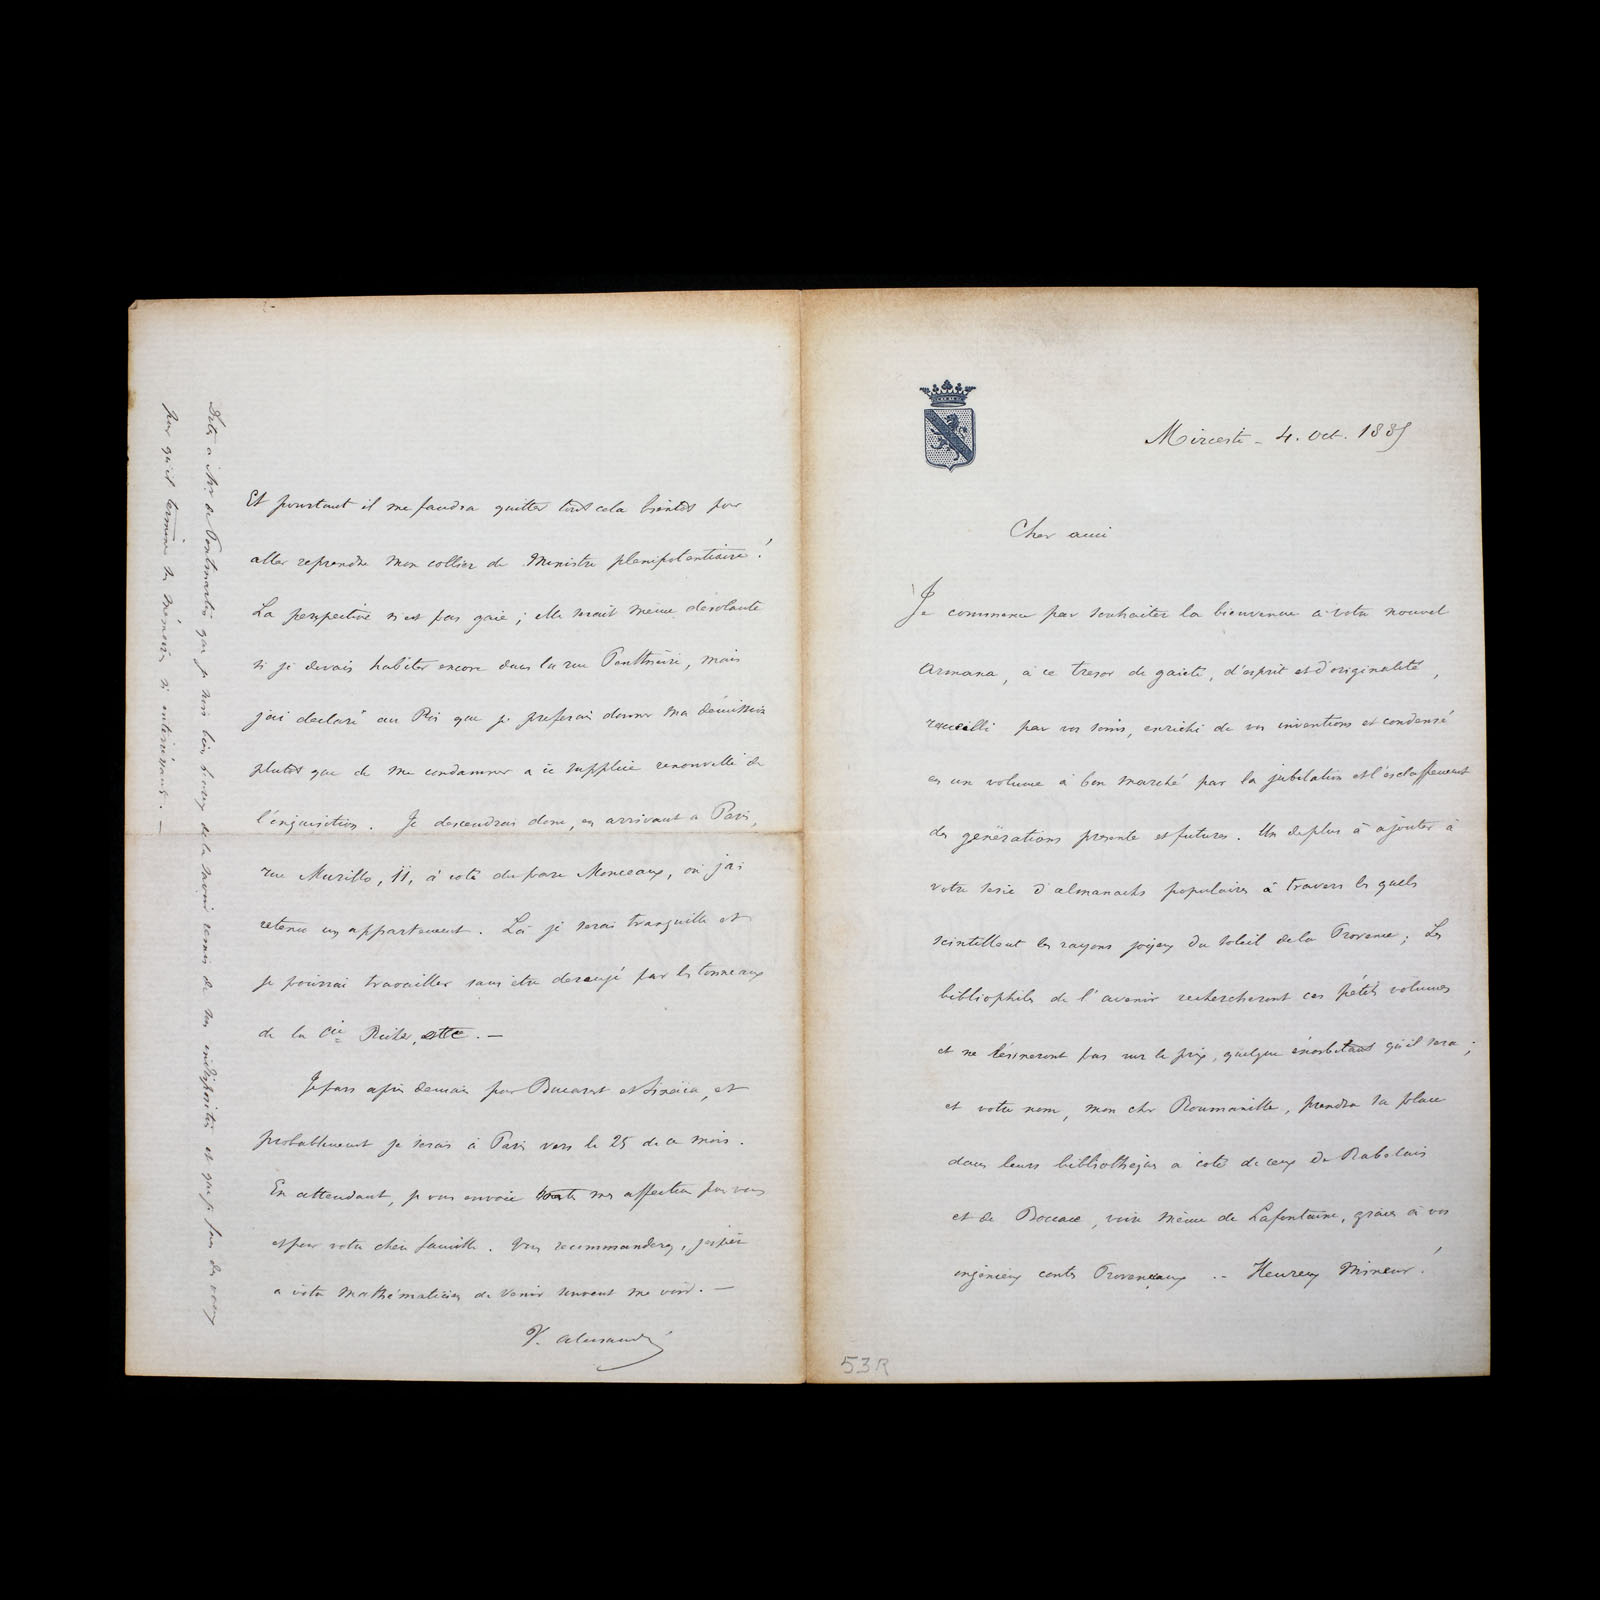 Mircesti - 4. Oct. 1885
Cher ami
Je commence par souhaiter la bienvenue à votre nouvel
Armana, à ce tresor de gaieté, d'esprit et d'originalité,
recueilli par vos soins, enrichi de vos inventions et condensé
en un volume à bon marché par la jubilation et l'esclaffement
des générations presente et futures. Un de plus à ajouter à
votre serie d'almanachs populaires à travers les quels
scintillent les rayons joyeux du soleil de la Provence; Les
bibliophiles de l'avenir rechercheront ces petits volumes
et ne lésineront pas sur le prix, quelque éxorbitant qu'il sera;
et votre nom, mon cher Roumanille, prendra sa place
dans leurs bibliothèques a coté de ceux de Rabelais
et de Boccace, voire même de Lafontaine, grâce à vos
ingenieux contes Provençaux .. Heureux Mineur!
53R
Et pourtant il me faudra quitter tout cela bientôt pour
aller reprendre mon collier de Ministre plenipotentiaire!
La perspective n'est pas gaie; elle serait même désolante
si je devais habiter encore dans la rue Penthièvre, mais
j'ai declaré au Roi que je preferais donner ma démission
plutôt que de me condamner a ce supplice renouvellé de
l'inquisition. Je descendrai donc, en arrivant a Paris,
rue Murillo, 11, à coté du parc Monceaux, où j'ai
retenu un appartement. Là je serai tranquille et
je pourrai travailler sans être derangé par les tonneaux
de la Cie Richer, .—
Je pars après demain pour Bucarest et Sinaïa, et
probablement je serai à Paris vers le 25 de ce mois.
En attendant, je vous envoie toute mes affection pour vous
et pour votre chère famille. Vous recommanderez, j'espère
a votre mathématicien de venir souvent me voir. —
V. Alecsandri
Dites a Mr. de Pontmartin que je suis bien heureux de le savoir remis de son indisposition et que je fais des vœux
pour qu'il termine ses Mémoires si intéréssants. —